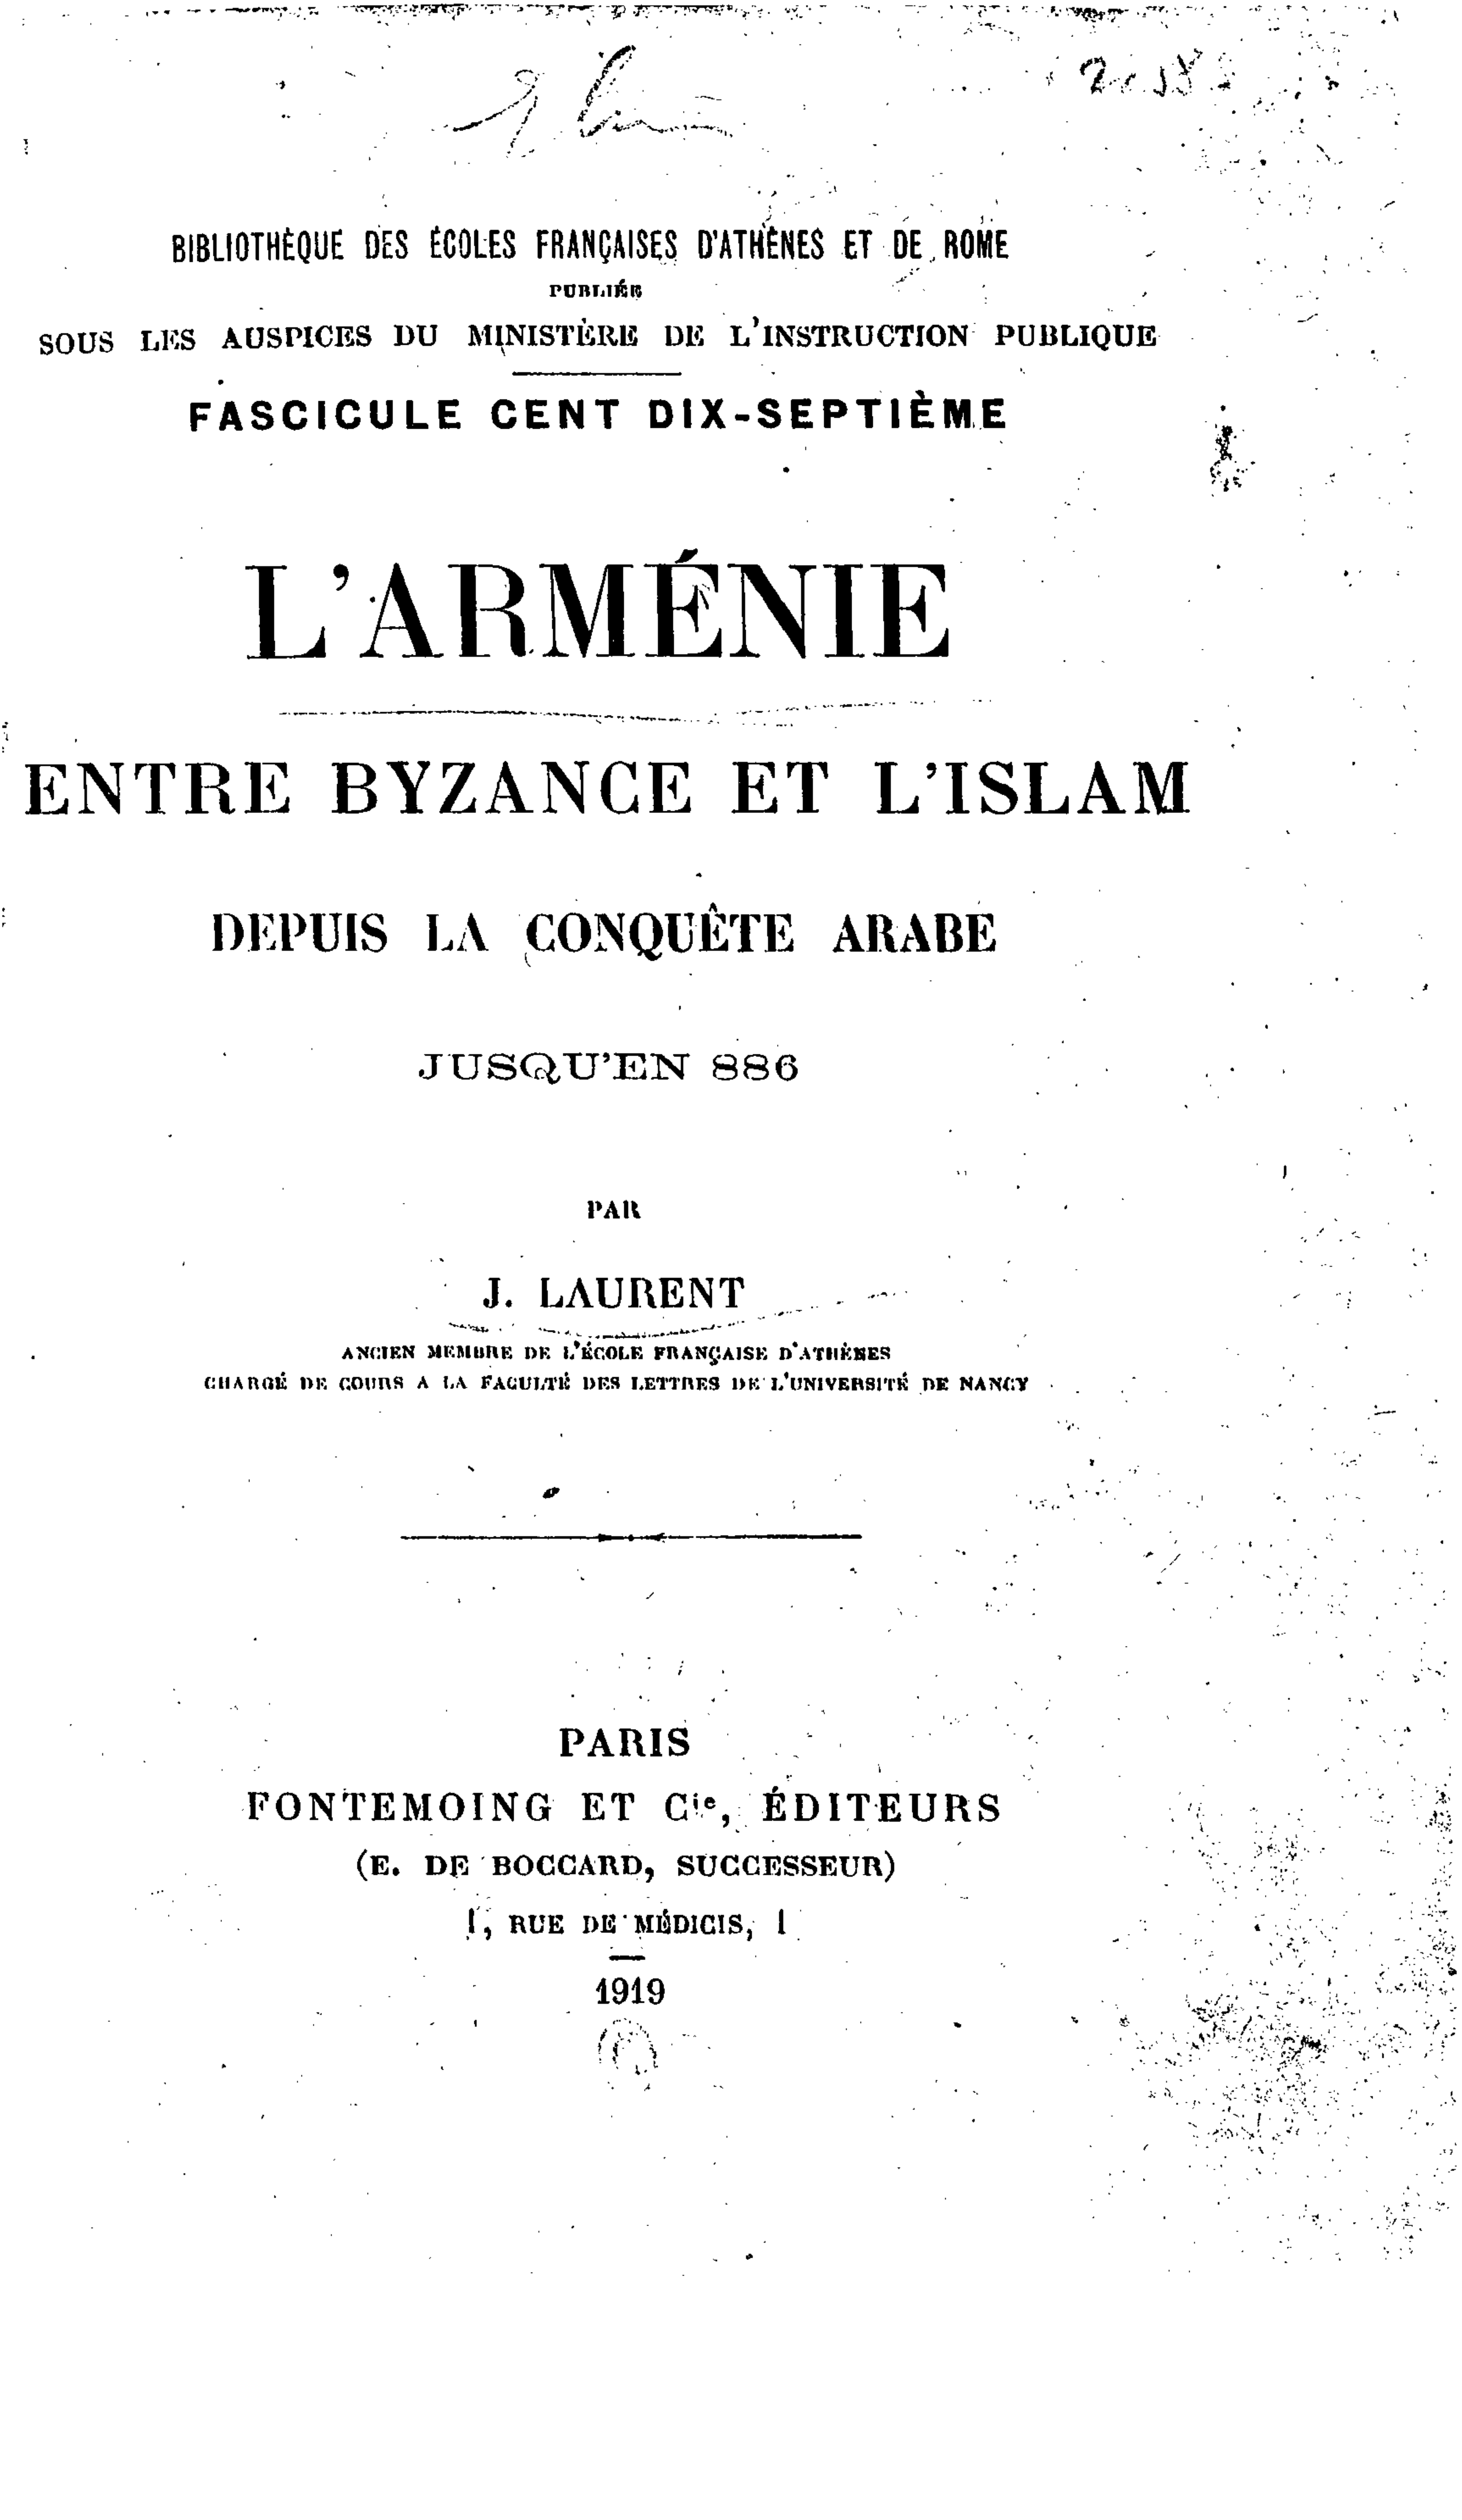 BIBLIOTHÈQUE DES ÉCOLES FRANÇAISES D'ATHÈNES ET DE ROME
PUBLIÉE
SOUS LES AUSPICES DU MINISTÈRE DE L'INSTRUCTION PUBLIQUE
FASCICULE CENT DIX-SEPTIÈME
L'ARMÉNIE
ENTRE BYZANCE ET L'ISLAM
DEPUIS LA CONQUÊTE ARABE
JUSQU'EN 886
PAR
J. LAURENT
ANCIEN MEMBRE DE L'ÉCOLE FRANÇAISE D'ATHÈNES
CHARGÉ DE COURS A LA FACULTÉ DES LETTRES DE L'UNIVERSITÉ DE NANCY
PARIS
FONTEMOING ET Cie, ÉDITEURS
(E. DE BOCCARD, SUCCESSEUR)
1, RUE DE MÉDICIS, 1
1919